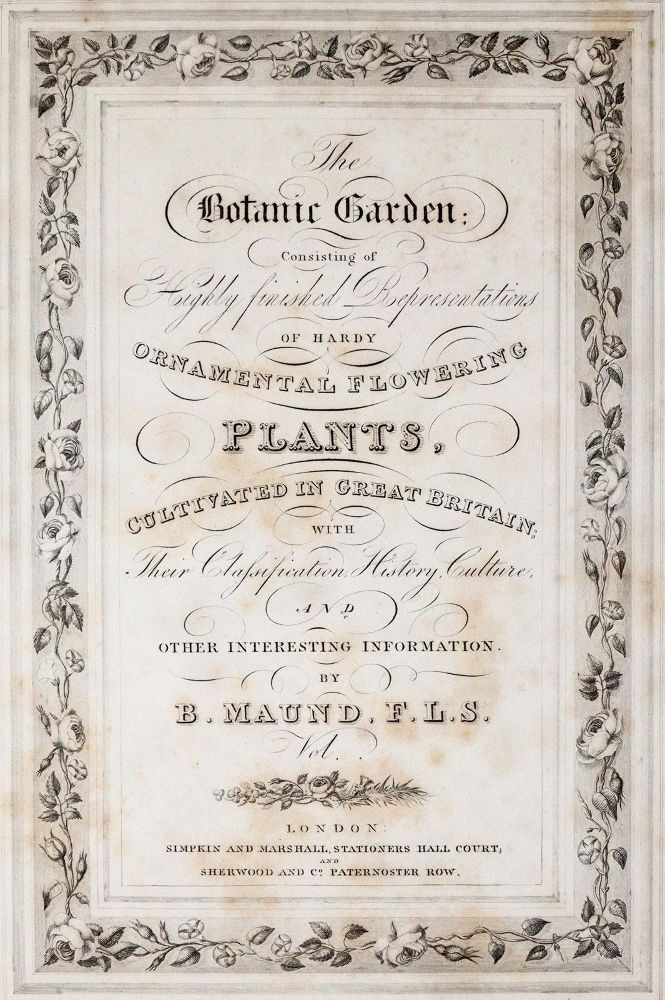 The
Botanic Garden;
Consisting of
Highly finished Representations
OF HARDY
ORNAMENTAL FLOWERING
PLANTS,
CULTIVATED IN GREAT BRITAIN;
WITH
Their Claſsification, History, Culture,
AND
OTHER INTERESTING INFORMATION.
BY
B. MAUND, F.L.S.
Vol. .
LONDON:
SIMPKIN AND MARSHALL, STATIONERS HALL COURT;
AND
SHERWOOD AND Co. PATERNOSTER ROW.